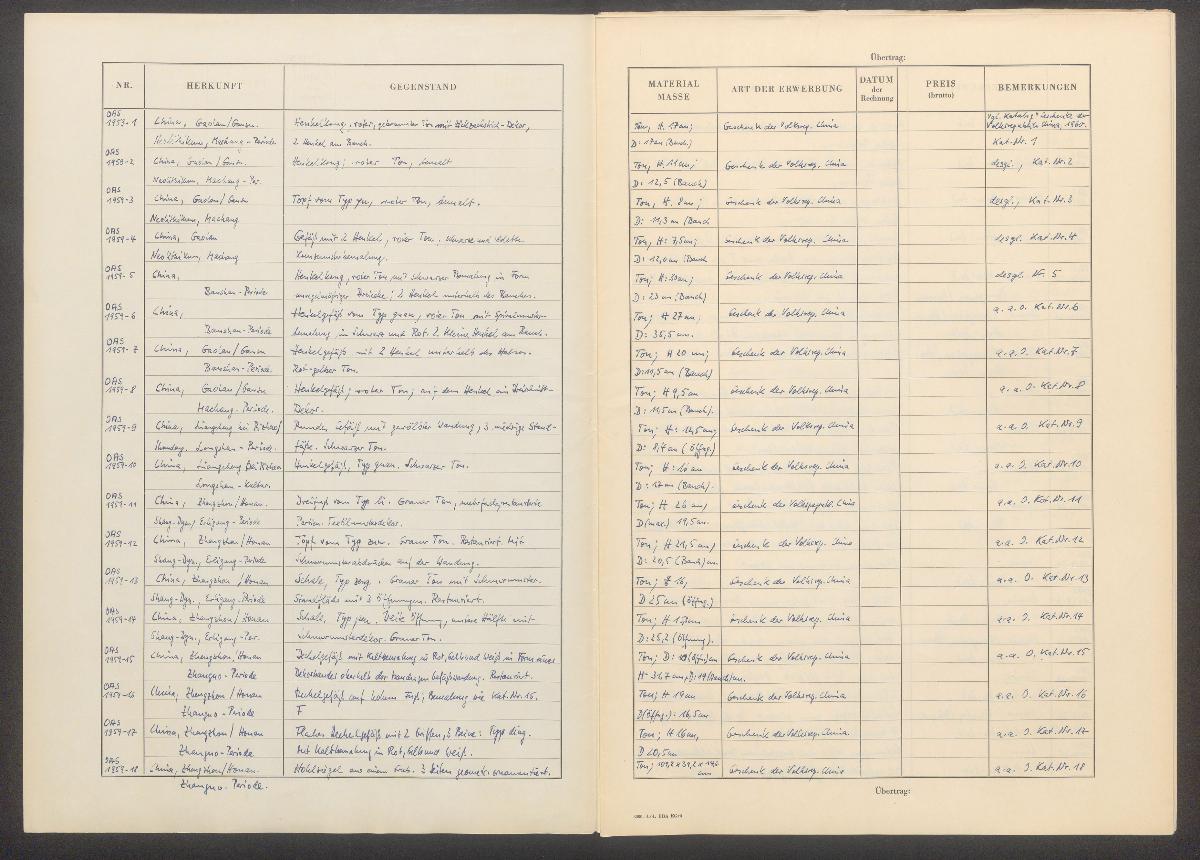 NR. HERKUNFT GEGENSTAND
OAS
1959-1 China, Gaolan/Gansu. Henkelkrug, roter, gebrannter Ton mit Dekor,
Neolithikum, Machang-Periode 2 Henkel am Bauch.
OAS
1959-2 China, Gaolan/Gansu. Henkelkrug; roter Ton, bemalt
Neolithikum, Machang-Per.
OAS
1959-3 China, Gaolan/Gansu Topf vom Typ roter Ton, bemalt.
Neolithikum, Machang
OAS
1959-4 China, Gaolan Gefäß mit 2 Henkel, roter Ton, schwarze und
Neolithikum, Machang
OAS
1959-5 China, Henkelkrug, roter Ton mit schwarzer Bemalung in Form
Banshan-Periode unregelmäßiger Dreiecke; 2 Henkel unterhalb des Bauches.
OAS
1959-6 China, Henkelgefäß vom Typ guan, roter Ton mit Spiralmuster-
Banshan-Periode bemalung in Schwarz und Rot. 2 kleine Henkel am Bauch.
OAS
1959-7 China, Gaolan/Gansu Henkelgefäß mit 2 Henkel unterhalb des Halses.
Banshan-Periode. Rot-gelber Ton.
OAS
1959-8 China, Gaolan/Gansu Henkelgefäß; roter Ton; auf dem Henkel ein
Machang-Periode. Dekor.
OAS
1959-9 China, Liangcheng bei Rizhao/ Rundes Gefäß mit gewölbter Wandung, 3 niedrige Stand-
Shandong. Longshan-Periode. füße. Schwarzer Ton.
OAS
1959-10 China, Liangcheng bei Rizhao Henkelgefäß, Typ guan. Schwarzer Ton.
Longshan-Kultur.
OAS
1959-11 China, Zhengzhou/Honan. Dreifuß vom Typ li. Grauer Ton,
Shang-Dyn./Erligang-Periode Partien. Textilmusterdekor.
OAS
1959-12 China, Zhengzhou/Honan Topf vom Typ Grauer Ton. Restauriert. Mit
Shang-Dyn., Erligang-Periode Schnurmusterabdrücken auf der Wandung.
OAS
1959-13 China, Zhengzhou/Honan Schale, Typ Grauer Ton mit Schnurmuster.
Shang-Dyn., Erligang-Periode mit 3 Öffnungen. Restauriert.
OAS
1959-14 China, Zhengzhou/Honan Schale, Typ Weite Öffnung, untere Hälfte mit
Shang-Dyn., Erligang-Per. Schnurmusterdekor. Grauer Ton.
OAS
1959-15 China, Zhengzhou/Honan Deckelgefäß mit Kaltbemalung in Rot, Gelb und Weiß in Form eines
Zhanguo-Periode Dekorbandes oberhalb der Gefäßwandung. Restauriert.
OAS
1959-16 China, Zhengzhou/Honan Deckelgefäß auf hohem Fuß; Bemalung wie Kat.Nr. 15.
Zhanguo-Periode F
OAS
1959-17 China, Zhengzhou/Honan Flaches Deckelgefäß mit 2 Griffen, 3 Beine: Typ ding.
Zhanguo-Periode Mit Kaltbemalung in Rot, Gelb und Weiß.
OAS
1959-18 China, Zhengzhou/Honan. Hohlziegel aus einem Grab. 3 Seiten geometr. ornamentiert.
Zhanguo-Periode.
Übertrag:
MATERIAL MASSE ART DER ERWERBUNG DATUM der Rechnung PREIS (brutto) BEMERKUNGEN
vgl. Katalog "Geschenke der
Ton, H. 17cm; Geschenk der Volksreg. China Volksrepublik China, 1960.
D: 17cm (Bauch) Kat-Nr. 1
Ton, H 11cm; Geschenk der Volksreg. China desgl., Kat.Nr.2
D: 12,5 (Bauch)
Ton, H. 8cm; Geschenk der Volksreg. China desgl., Kat.Nr.3
D: 11,3cm (Bauch
Ton, H: 7,5cm; Geschenk der Volksreg. China desgl. Kat.Nr.4
D: 12,0cm (Bauch
Ton; H: 20cm; Geschenk der Volksreg. China desgl. Nr. 5
D: 23cm (Bauch)
Ton; H 27cm; Geschenk der Volksreg. China a.a.O. Kat.Nr.6
D: 35,5cm.
Ton; H 20 cm; Geschenk der Volksreg. China a.a.O. Kat.Nr.7
D: 11,5cm (Bauch)
Ton; H 9,5cm Geschenk der Volksreg. China a.a.O. Kat.Nr.8
D: 11,5cm (Bauch).
Ton; H: 12,5cm; Geschenk der Volksreg. China a.a.O. Kat.Nr.9
D: 8,4cm (Öffng.)
Ton; H: 16cm Geschenk der Volksreg. China a.a.O. Kat.Nr.10
D: 17cm (Bauch).
Ton; H 26cm/ Geschenk der China a.a.O. Kat.Nr.11
D(max.) 19,5cm.
Ton; H 21,5cm; Geschenk der Volksreg. China a.a.O. Kat.Nr.12
D: 20,5 (Bauch)cm
Ton; 16, Geschenk der Volksreg. China a.a.O. Kat.Nr.13
D 25cm (Öffng.)
Ton; H 17cm Geschenk der Volksreg. China a.a.O. Kat.Nr.14
D: 25,2 (Öffnung).
Ton; D: (Öffn.)cm Geschenk der Volksreg. China a.a.O. Kat.Nr.15
H: 31,7cm, D: 19 (Bauch)cm.
Ton; H 19cm Geschenk der Volksreg. China a.a.O. Kat.Nr.16
D(Öffng.): 16,5cm
Ton; H 16cm, Geschenk der Volksreg. China. a.a.O. Kat.Nr.17
D 20,5cm
Ton; cm Geschenk der Volksreg. China a.a.O. Kat.Nr.18
Übertrag: